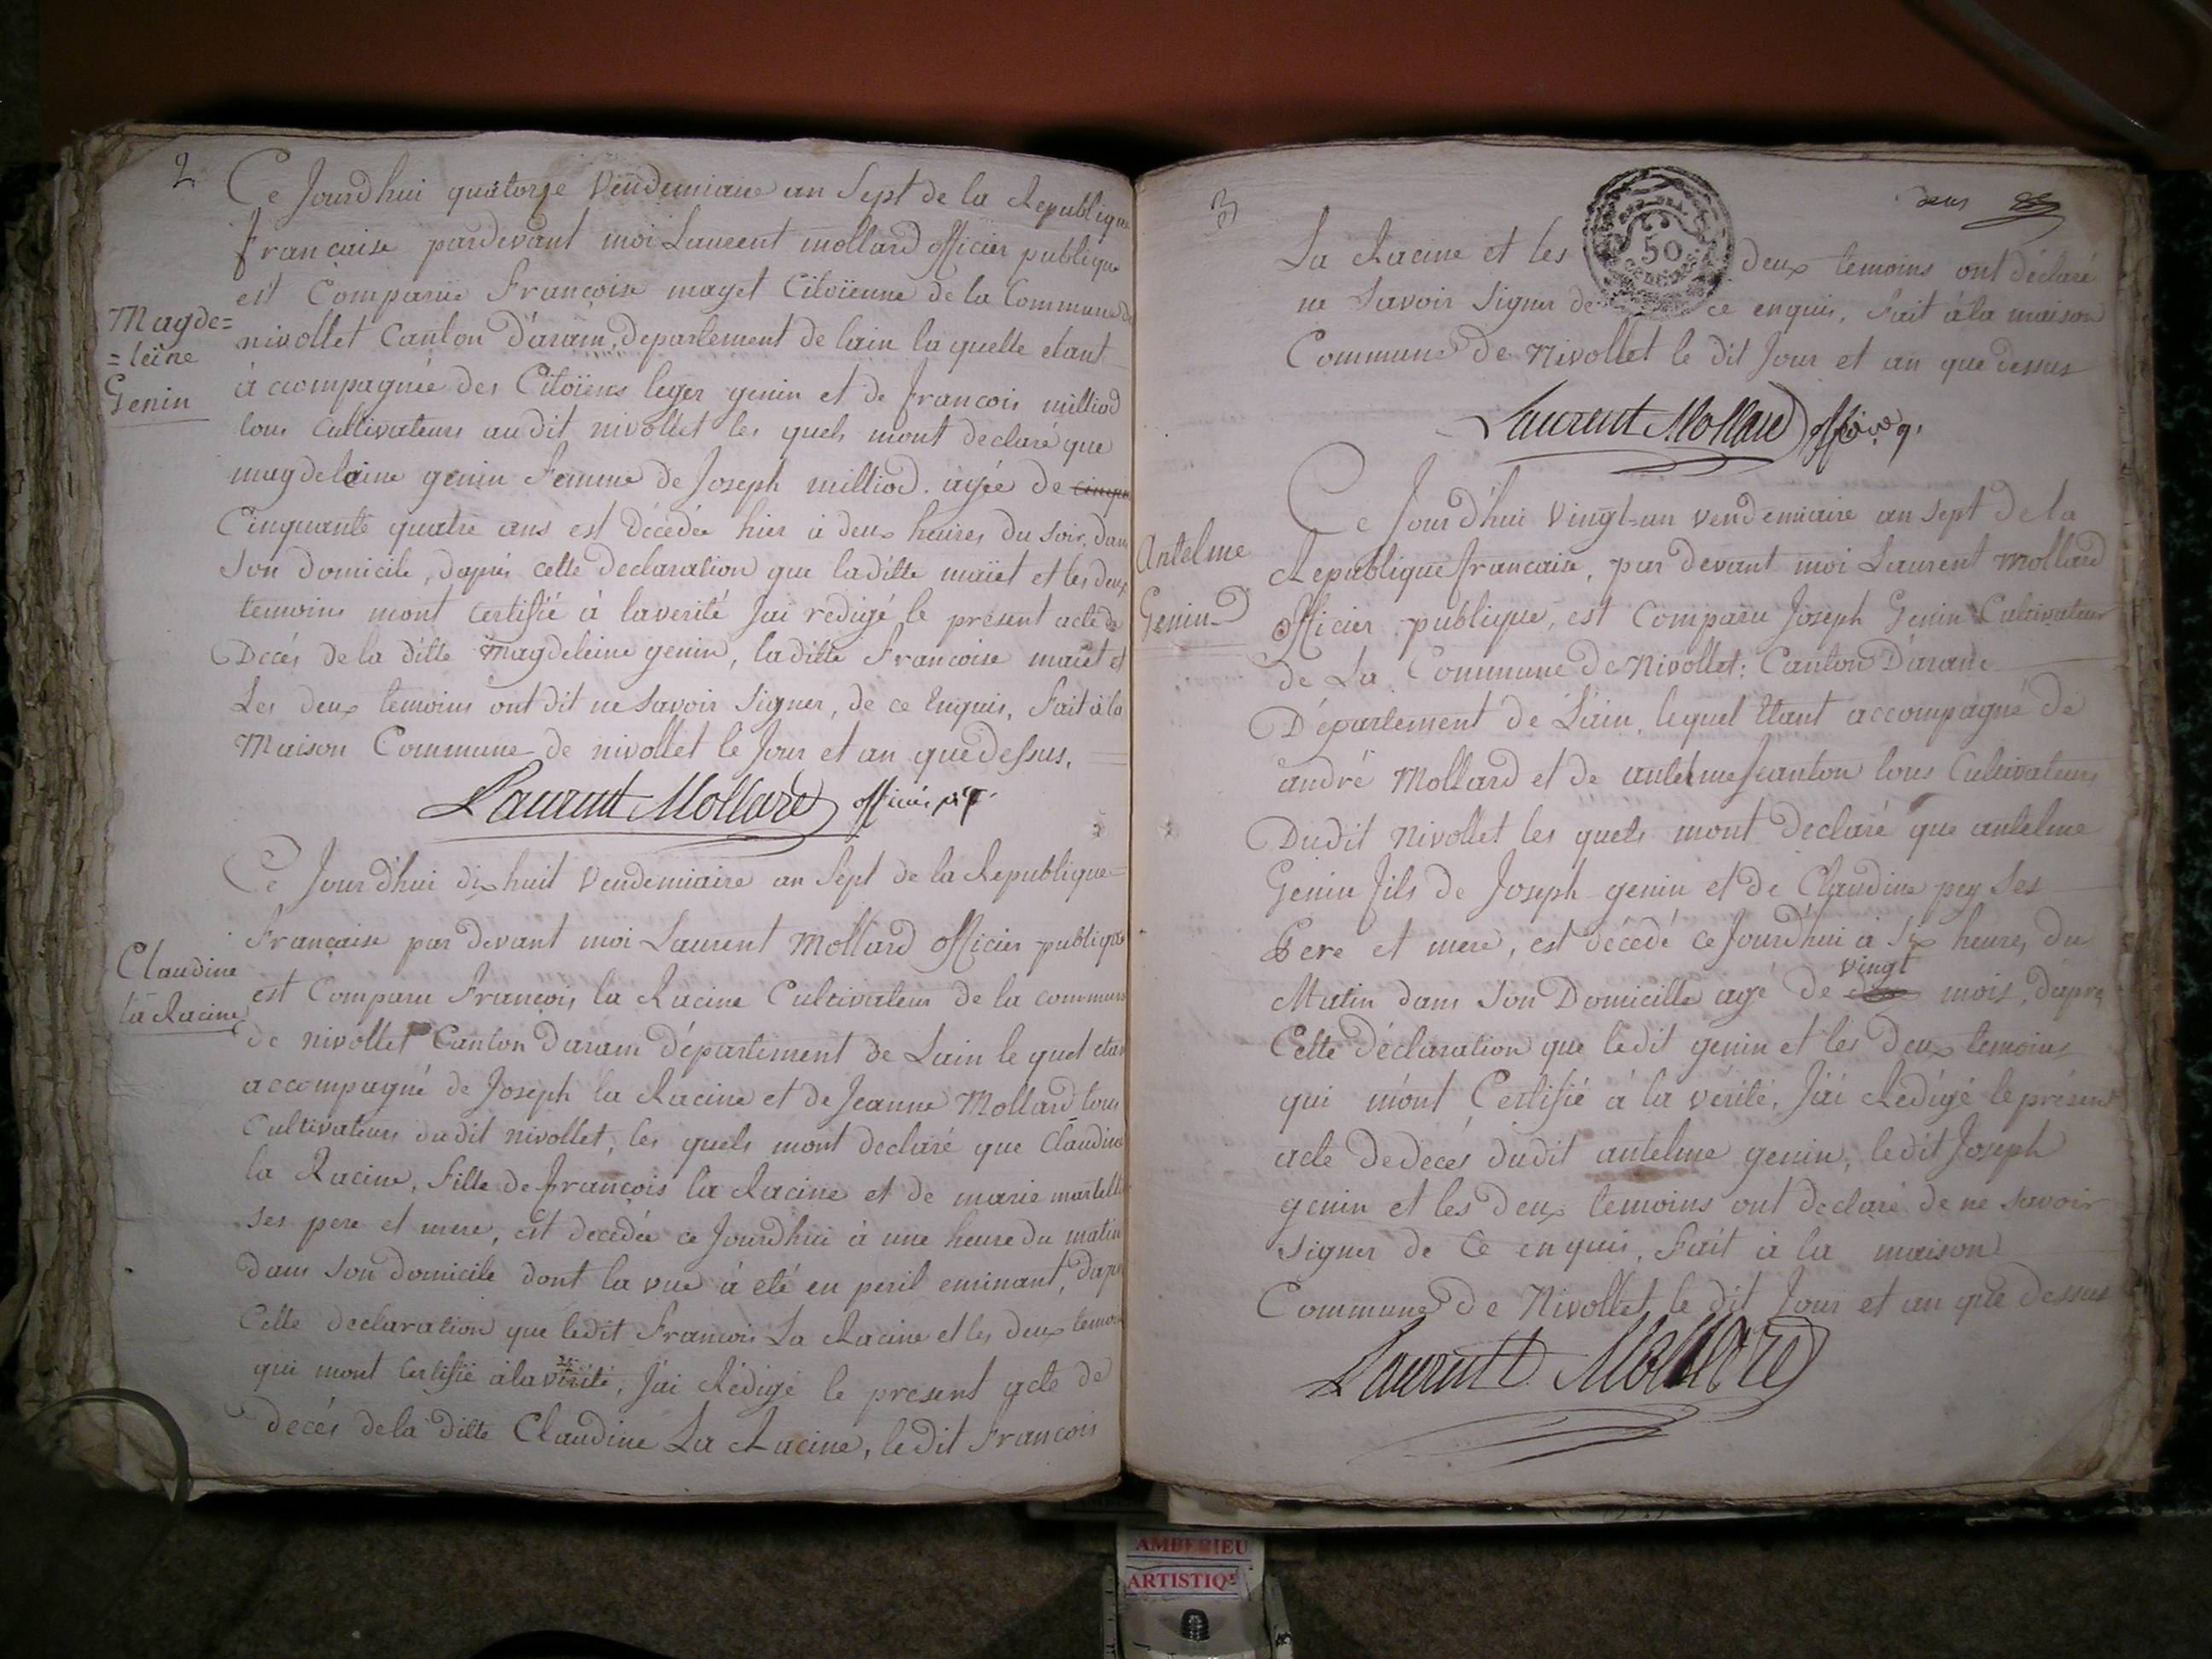 2
Ce Jourdhui quatorze Vendemiaire an Sept de la Republique
francaise pardevant moi Laurent mollard officier publique
est Comparüe Françoise mayet Citoïenne de la Commune de
nivollet Canton D'aram, departement de lain la quelle etant
à ccompagnée des Citoïens leger genin et de francois milliod
tous Cultivateurs audit nivollet les quels mont declaré que
magdelaine genin femme de Joseph milliod. agée de
Cinquante quatre ans est décédée hier à deux heures du soir, dans
Son domicile, dapres cette declaration que laditte maïet et les deux
temoins mont certifié à laverité Jai redigé le présent acte de
Décés de la ditte Magdeleine genin, laditte francoise maïet et
Les deux temoins ont dit ne Savoir Signer, de ce Enquis, fait à la
Maison Commune de nivollet le Jour et an que dessus.
Laurent Mollard officier
Magde=
=leine
Genin
Ce Jour d'hui dix huit Vendemiaire an Sept de la Republique=
Francaise par devant moi Laurent Mollard officier publique
est Comparu François la Racine Cultivateur de la commune
de nivollet Canton daram département de Lain le quel etant
accompagné de Joseph la Racine et de Jeanne Mollard tous
Cultivateurs dudit nivollet, les quels mont declaré que Claudine
la Racine, fille de françois la Racine et de marie martell
ses pere et mere, est decedée ce Jourdhui à une heure du matin
dans Son domicile dont la vue à eté en peril eminant, dap
Cette declaration que ledit Francois La Racine et les deux temoi
qui mont certifié à la vérité, J'ai Rédigé le présent acte de
decés de la ditte Claudine La Racine, ledit Francois
Claudine
la Racine
3
deux
La Racine et les deux temoins ont déclaré
50
ne Savoir Signer de ce enquis, fait à la maison
Commune de Nivollet le dit Jour et an que dessus
Laurent Mollard
Ce Jour d'hui Vingt=un vendemiaire an Sept de la
Republique francaise, par devant moi Laurent Mollard
officier publique, est Comparu Joseph Genin Cultivateur
de La Commune de Nivollet: Canton D'aram
Département de Lain, lequel Etant accompagné de
andré Mollard et de antelme Jeanton tous Cultivateurs
Dudit Nivollet les quels mont declaré que antelme
Genin fils de Joseph genin et de Claudine pey Ses
Pere et mere, est décedé ce Jourd'hui à Six heures du
vingt
Matin dans Son Domicille agé de mois, dapres
Cette déclaration que ledit genin et les deux temoins
qui m'ont Certifié à la vérité, J'ai Rédigé le présent
acte de decés dudit antelme genin, ledit Joseph
genin et les deux temoins ont declaré de ne savoir
Signer de Ce enquis, fait à la maison
Commune de Nivollet le dit Jour et an que dessus
Laurent Mollard
Antelme
Genin
AMBERIEU
ARTISTIQ